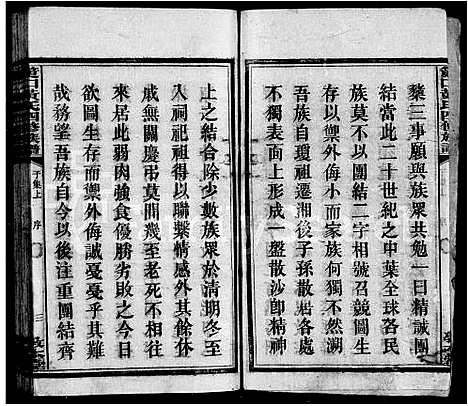 藜三事願與族眾共勉一曰精誠團
結當此二十世紀之中葉全球各民
族莫不以團結二字相號召競圖生
存以禦外侮小而家族何獨不然溯
吾族自始祖遷湘後子孫散居各處
不獨表面上形成一盤散沙即精神
上之結合除少數族眾於清明冬至
入祠祀祖得以聯繫情感外其餘休
戚無關慶弔莫問一遇外侮束手無
策處此弱肉強食優勝劣敗之今日
欲圖生存而禦外侮誠憂憂乎其難
哉務望吾族自今以後注重團結齊
黃氏四修族譜
子集上
序
三